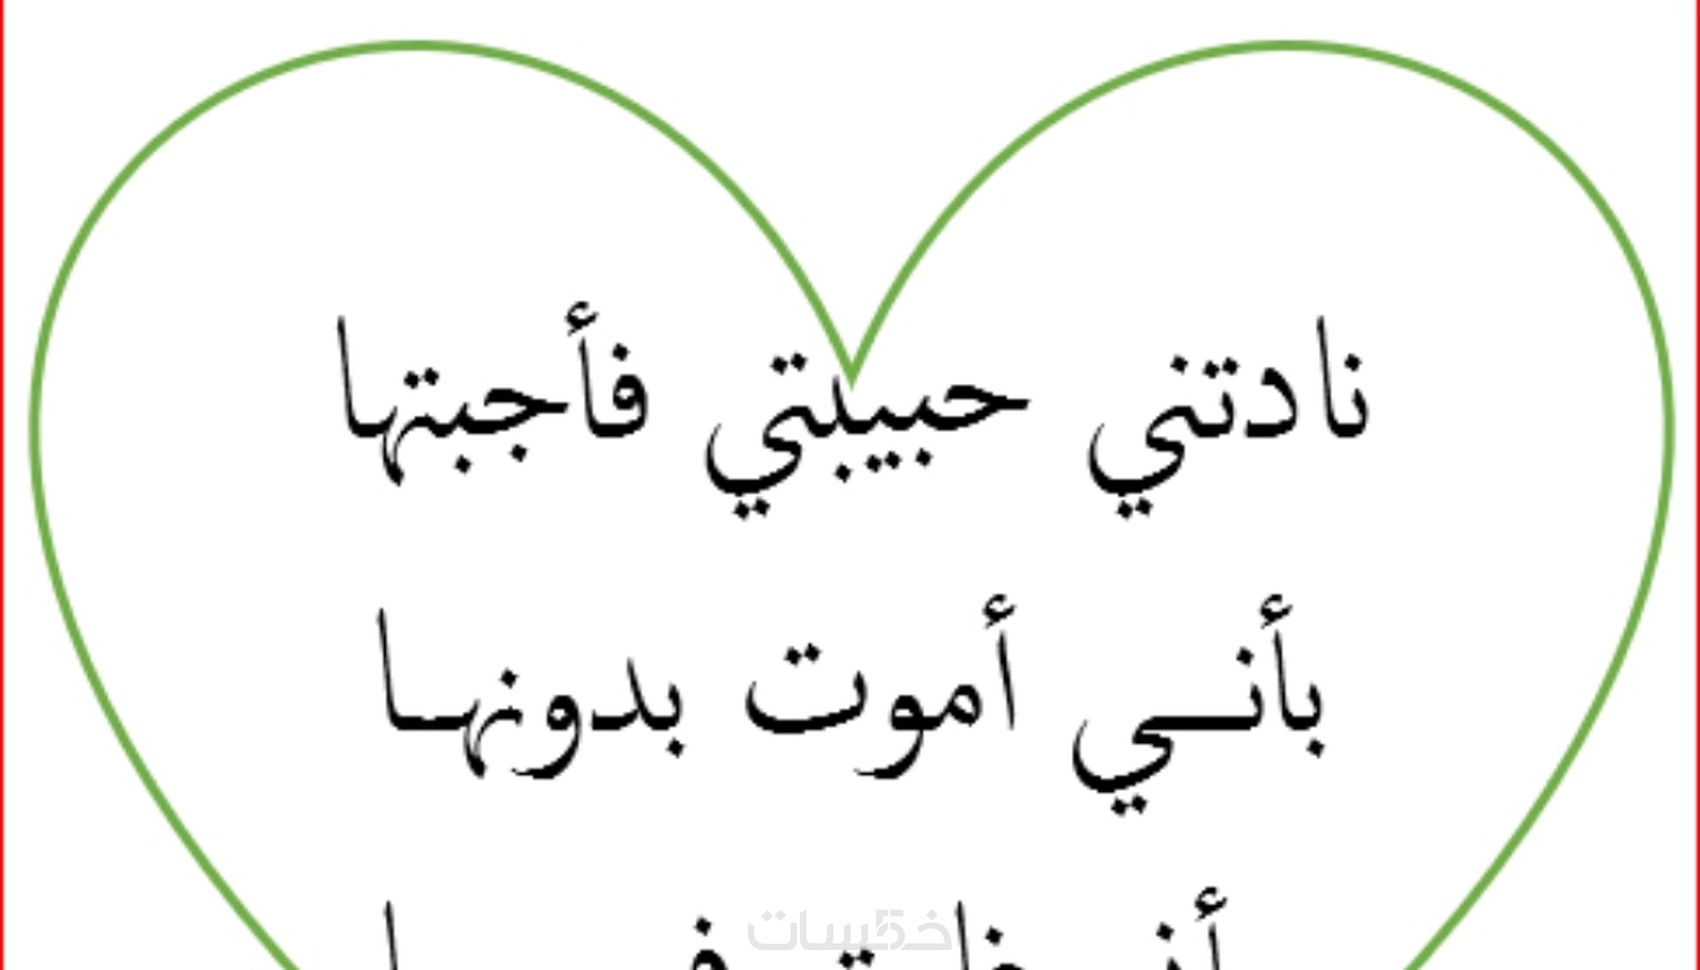 نادتني حبيبتي فأجبتها
بأنـــي أموت بدونهـا
خمسات